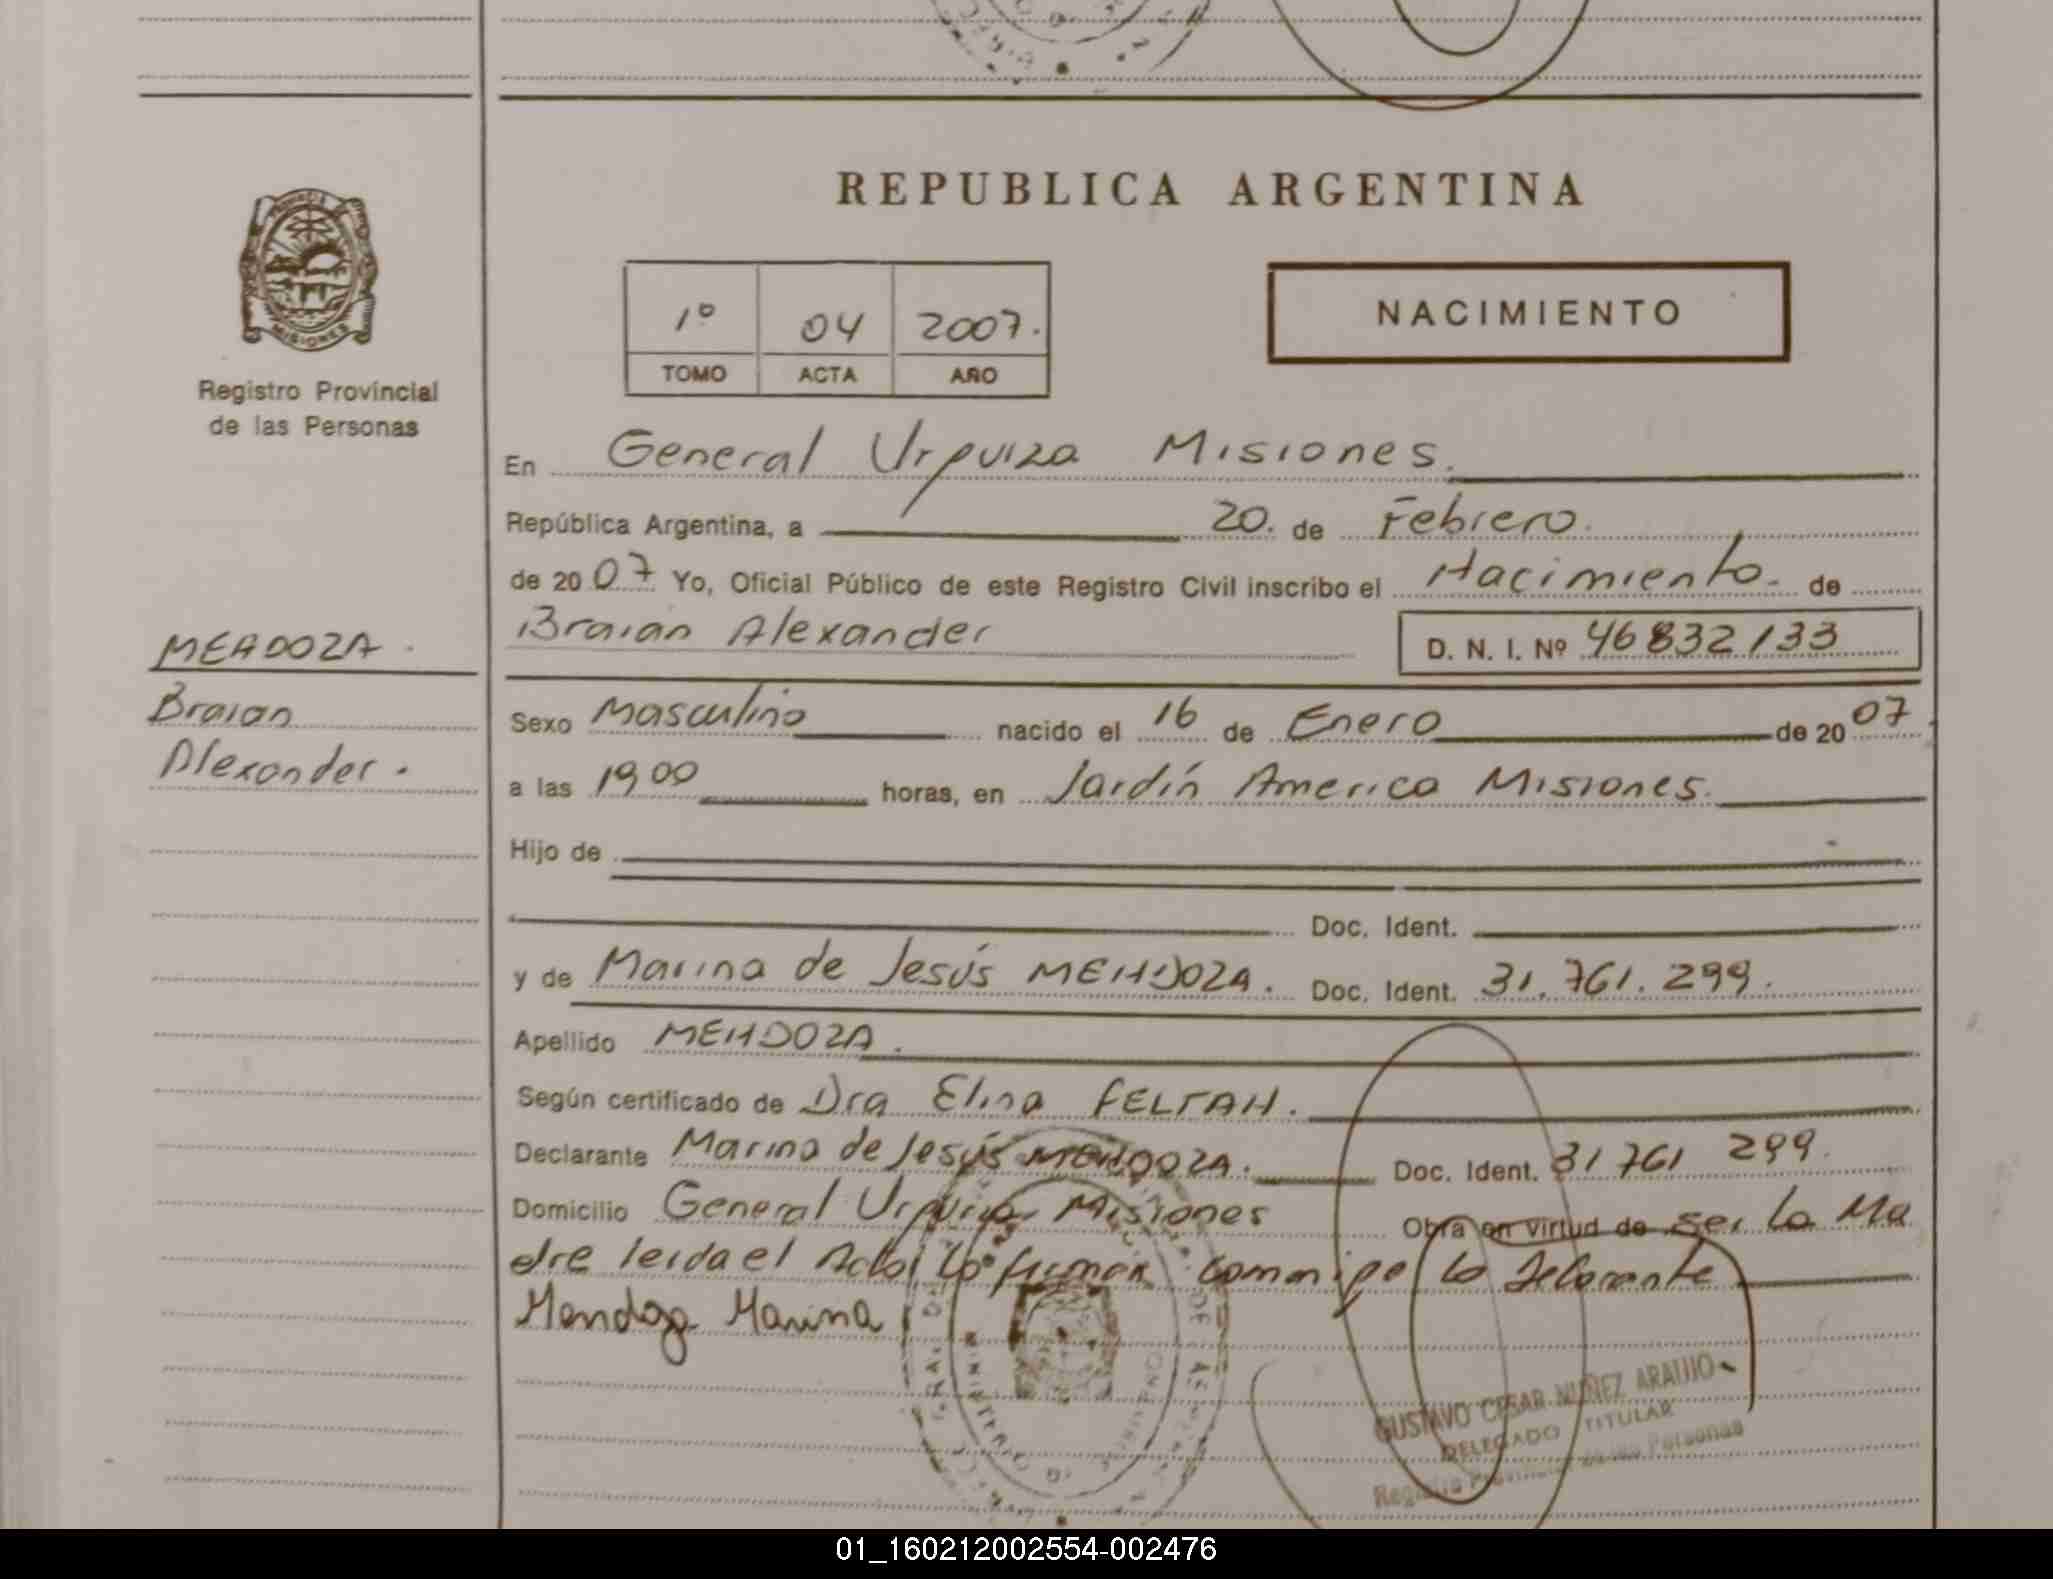 REPUBLICA ARGENTINA
1º 04 2007.
TOMO ACTA AÑO
NACIMIENTO
MISIONES
Registro Provincial
de las Personas
En General Urquiza Misiones.
República Argentina, a 20. de Febrero.
de 2007 Yo, Oficial Público de este Registro Civil inscribo el Nacimiento. de
Braian Alexander D. N. I. Nº 46832133
MENDOZA.
Braian
Alexander.
Sexo Masculino nacido el 16 de Enero de 2007
a las 19,00 horas, en Jardín America Misiones.
Hijo de
Doc. Ident.
y de Marina de Jesús MENDOZA. Doc. Ident. 31.761.299.
Apellido MENDOZA.
Según certificado de Dra Elina FELTAN.
Declarante Marina de Jesús MENDOZA. Doc. Ident. 31 761 299.
Domicilio General Urquiza Misiones Obra en virtud de ser la Ma
dre leida el Acta, la firman conmigo la
Mendoza Marina
GUSTAVO CESAR NUÑEZ ARAUJO
DELEGADO TITULAR
Registro Provincial de las Personas
01_160212002554-002476